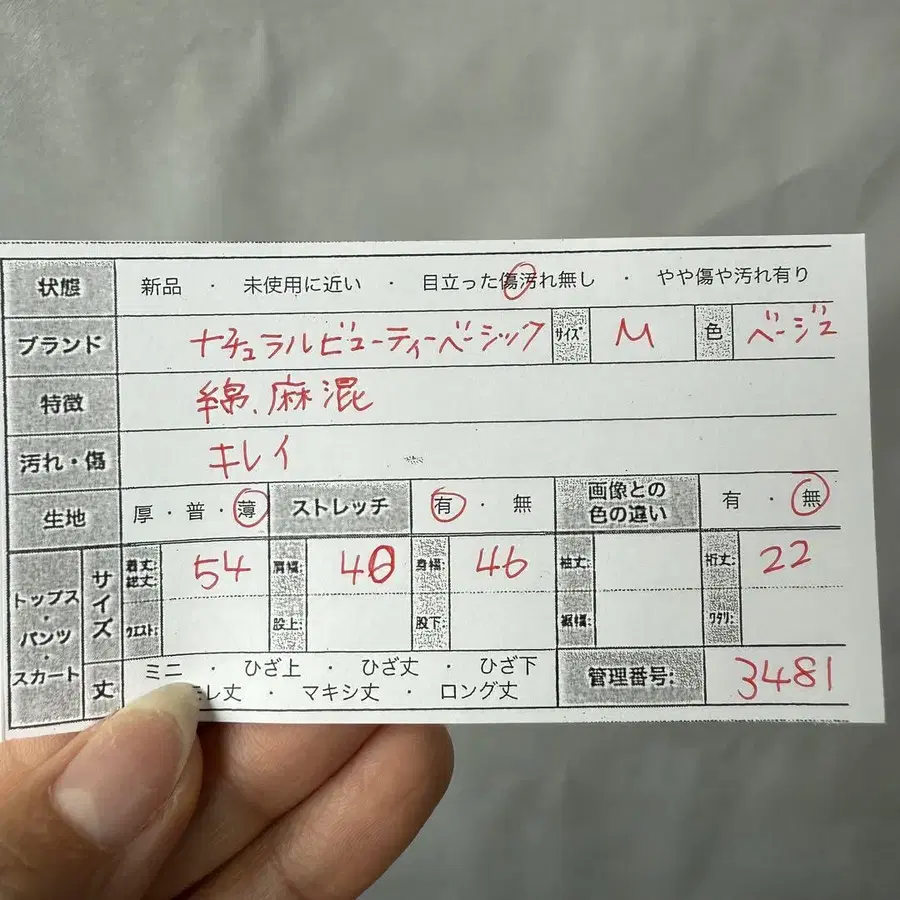 状態 新品 ・ 未使用に近い ・ 目立った傷汚れ無し ・ やや傷や汚れ有り
ブランド ナチュラルビューティーベーシック サイズ M 色 ベージュ
特徴 綿、麻混
汚れ・傷 キレイ
生地 厚・普・薄 ストレッチ 有・無 画像との色の違い 有・無
トップス・パンツ・スカート サイズ 着丈:総丈: 54 肩幅: 40 身幅: 46 袖丈: 裄丈: 22
ウエスト: 股上: 股下: 裾幅: ワタリ:
丈 ミニ ・ ひざ上 ・ ひざ丈 ・ ひざ下 管理番号: 3481
レ丈 ・ マキシ丈 ・ ロング丈